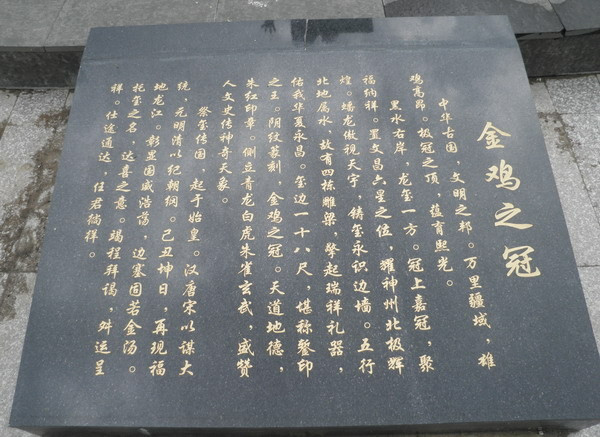 金鸡之冠
中华古国，文明之邦。万里疆域，雄
鸡高昂。极冠之顶，蕴育熙光。
黑水右岸，龙玺一方。冠上嘉冠，聚
福纳祥。置文昌六星之位，耀神州北极辉
煌。蟠龙傲视天宇，铸玺永识边墙。五行
北地属水，故有四栋雕梁，擎起瑞祥礼器，
佑我华夏永昌。玺边一十八尺，堪称鎏印
之王。阴纹篆刻，金鸡之冠。天道地德，
朱红印章。侧立青龙白虎朱雀玄武，盛赞
人文史传神奇天象。
祭玺传国，起于始皇。汉唐宋以谋大
统，元明清以纪朝纲。己丑坤日，再现福
地龙江。彰显国威浩荡，边塞固若金汤。
托玺之名，达喜之意。竭程拜谒，舛运呈
祥。仕途通达，任君徜祥。